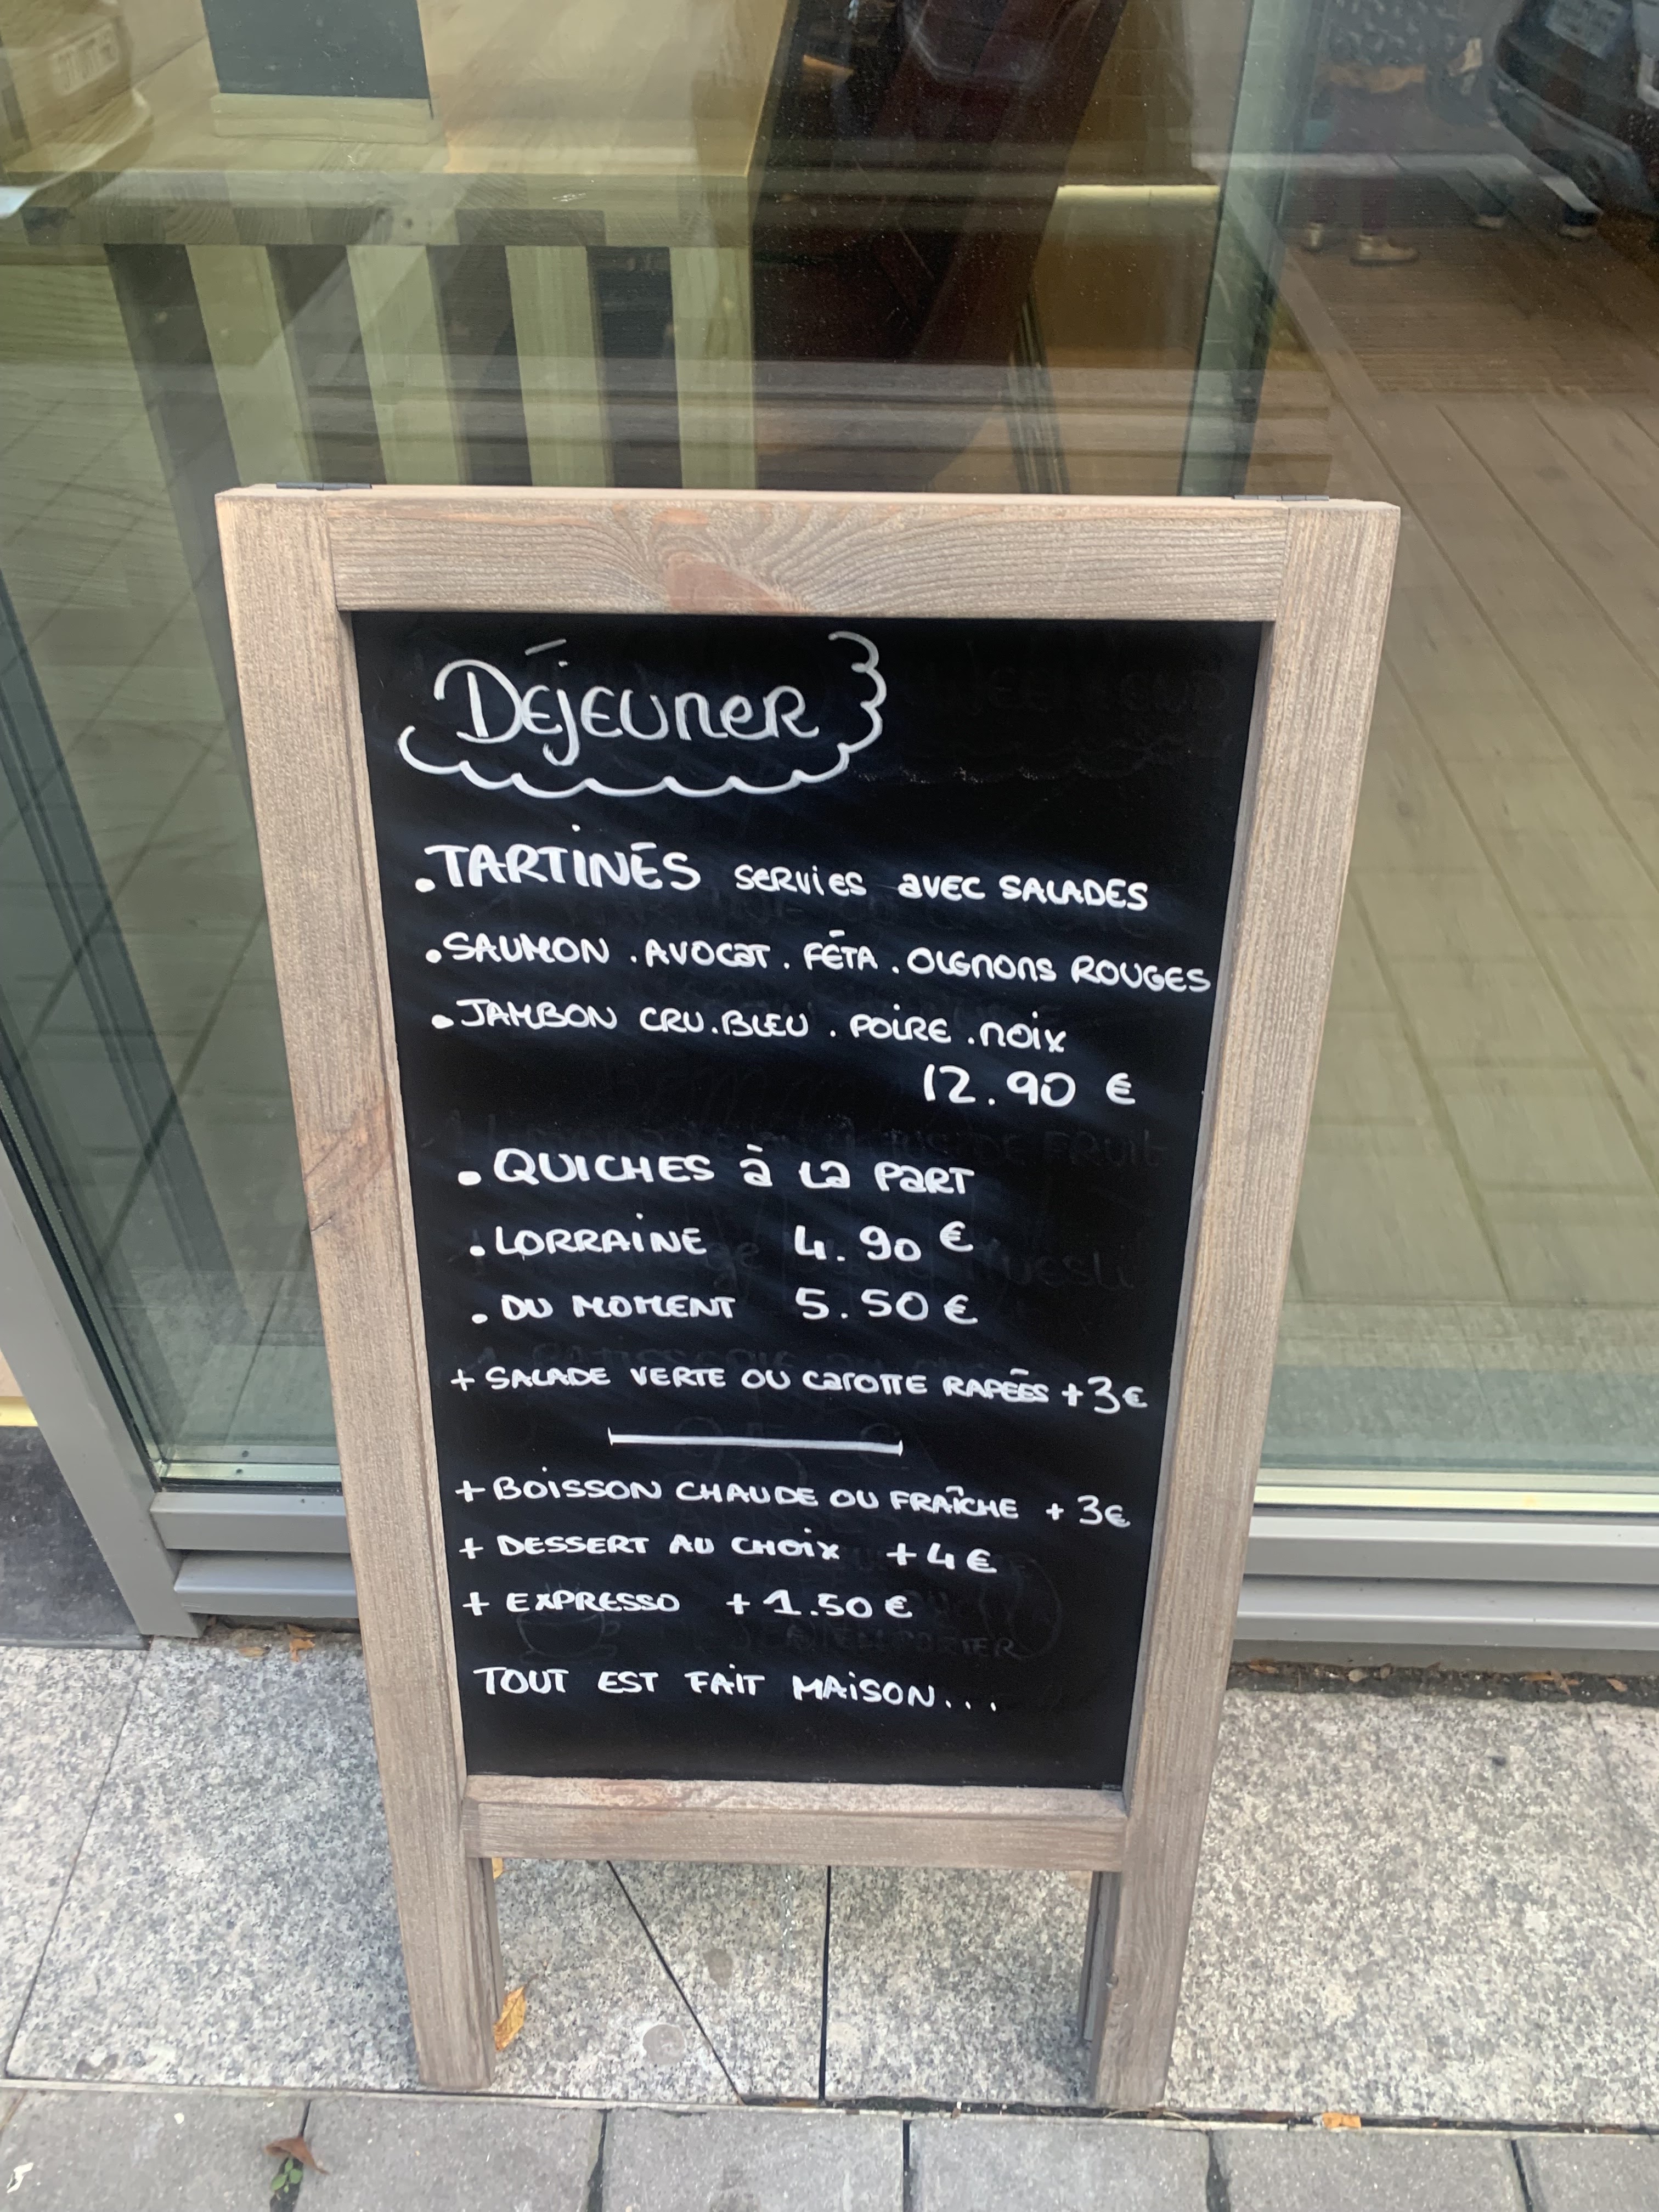 DÉJEUNER
.TARTINES servies avec SALADES
.SAUMON . AVOCAT . FÉTA . OIGNONS ROUGES
.JAMBON CRU . BLEU . POIRE . NOIX
12.90 €
.QUICHES à la PART
.LORRAINE 4.90 €
.DU MOMENT 5.50 €
+ SALADE VERTE OU CAROTTE RAPÉES +3€
+ BOISSON CHAUDE OU FRAÎCHE +3€
+ DESSERT AU CHOIX +4€
+ EXPRESSO +1.50€
TOUT EST FAIT MAISON...